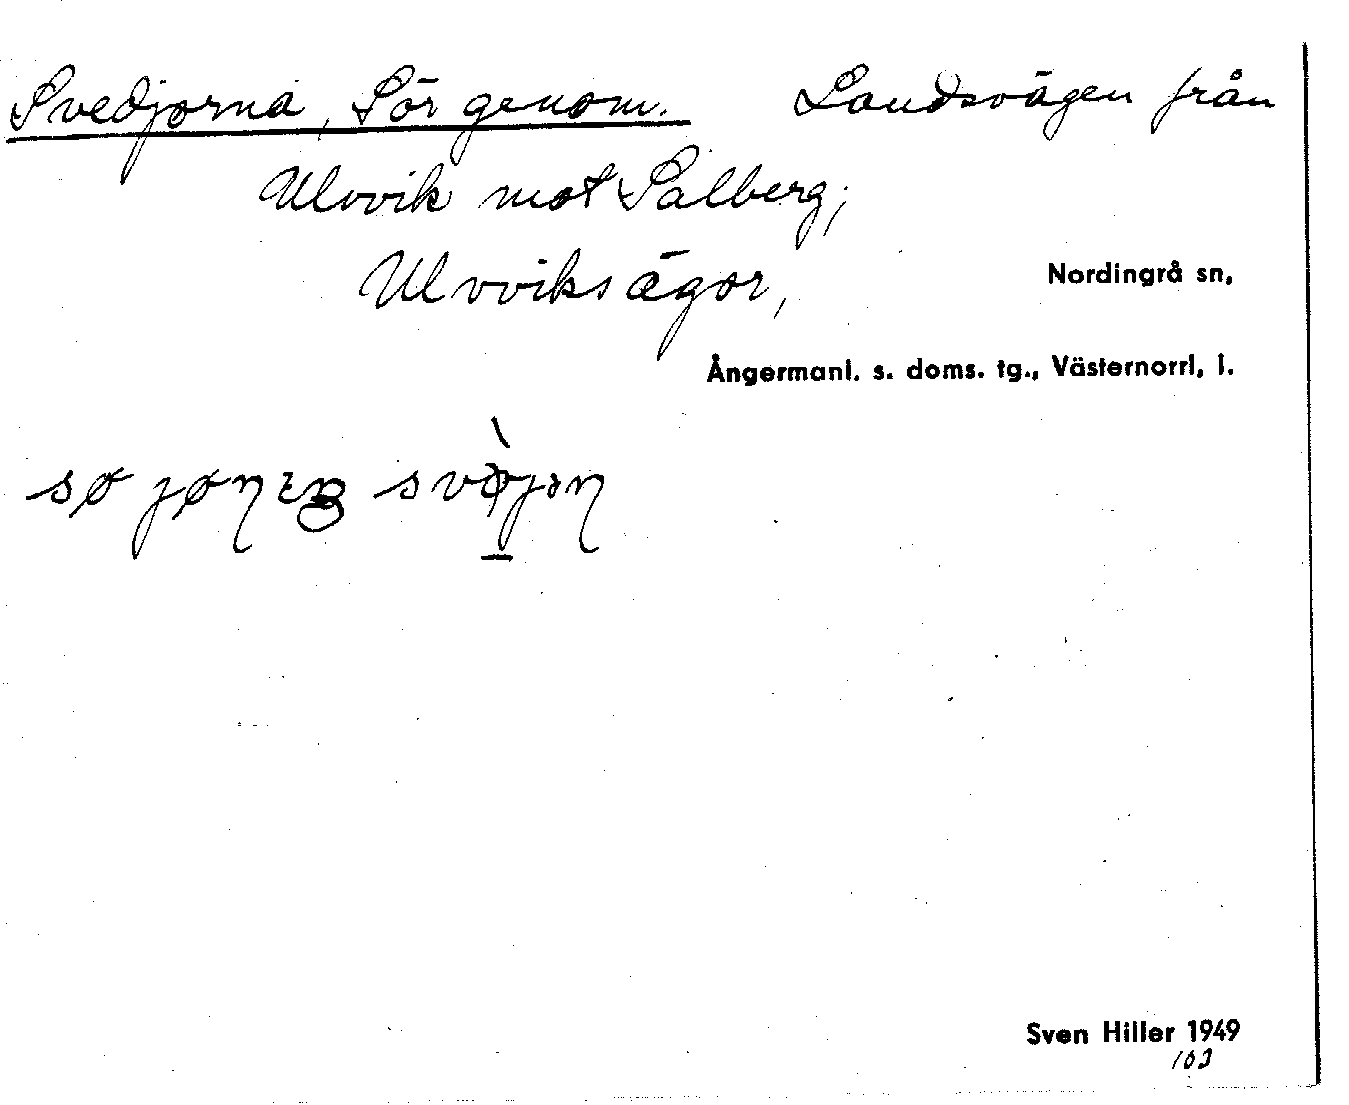 Svedjorna, Sör genom. Landsvägen från
Ulvvik mot Salberg;
Ulvviks ägor,
Nordingrå sn,
Ångermanl. s. doms. tg., Västernorrl. l.
Sven Hiller 1949
103